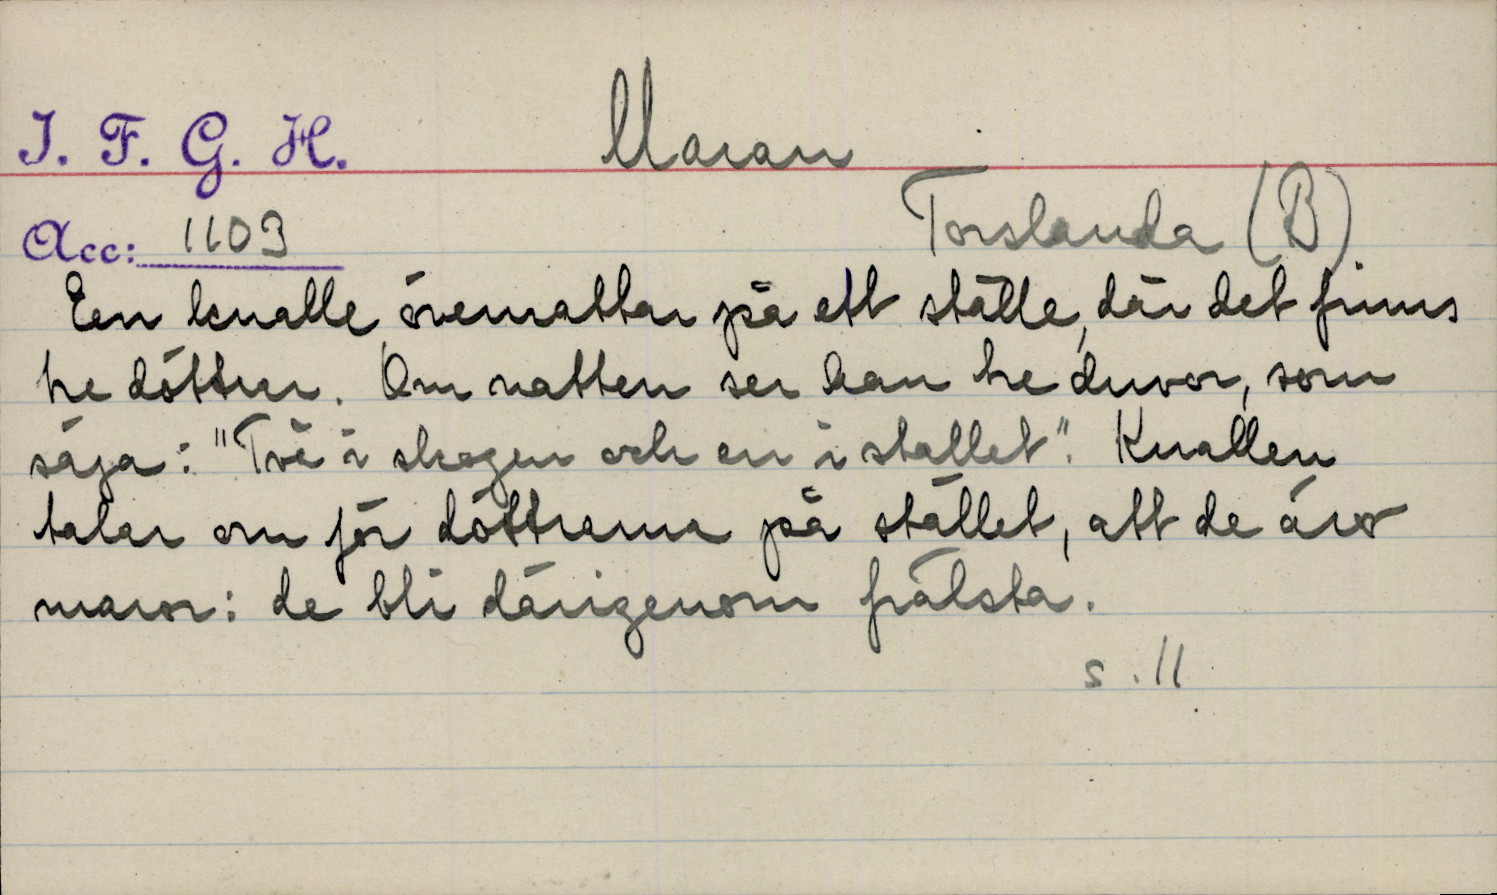 I. F. G. H.
Maran
Acc: 1103
Torslanda (B)
En knalle övernattar på ett ställe, där det finns
tre döttrar. Om natten ser han tre duvor, som
säga: "Två i skogen och en i stallet". Knallen
talar om för döttrarna på stället, att de äro
maror: de bli därigenom frälsta.
s. 11